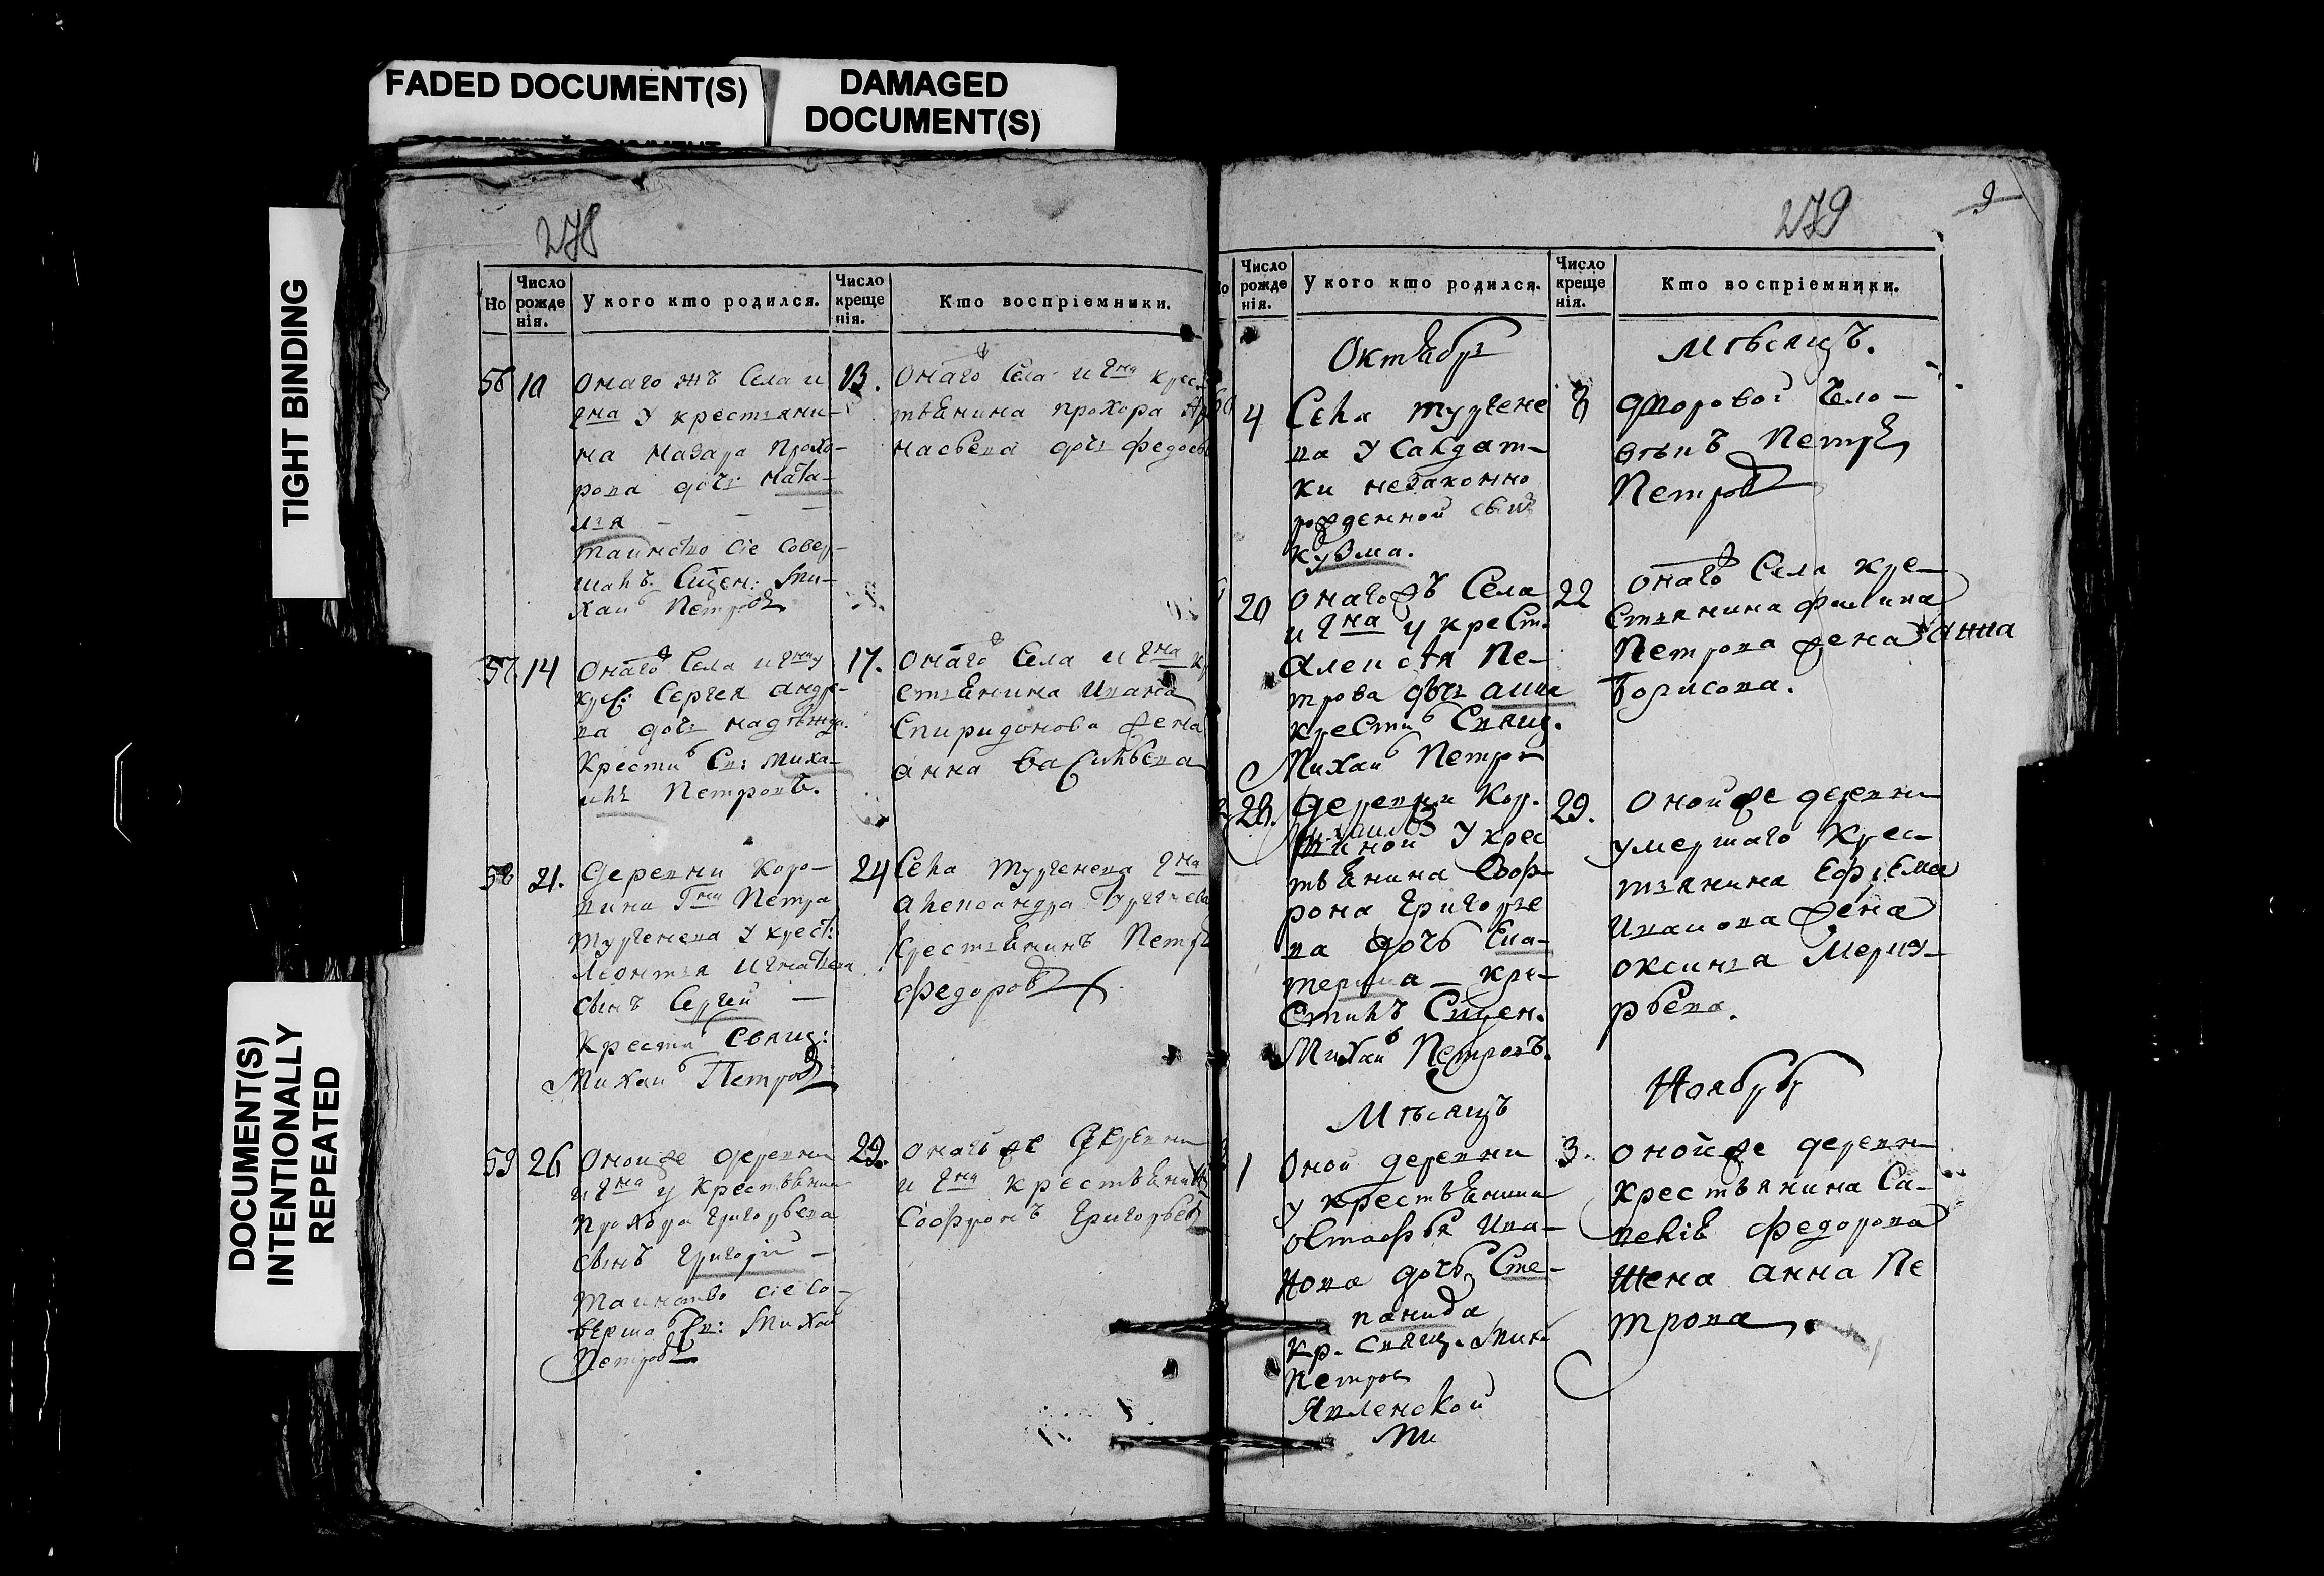 FADED DOCUMENT(S)
DAMAGED
DOCUMENT(S)
TIGHT BINDING
DOCUMENT(S)
INTENTIONALLY
REPEATED
278
Но
Число
рожде
нія.
У кого кто родился.
Число
креще
нія.
Кто воспріемники.
56 10
Онаго жъ Села и
гна у крестьяни-
на Назара Прохо-
рова дочь Ната-
лья
таинство сіе совер-
шалъ Сщен: Ми-
хаил Петров
13.
Онаго Села и гна крес-
тьянина Прохора
дочь Федось
57 14
Онаго Села и гна у
крес: Сергея Андре-
ва дочь Надѣжда.
Крестил Св: Миха-
илъ Петровъ.
17.
Онаго Села и гна
стьянина Ивана
Спиридонова жена
Анна Васильева
58 21.
Деревни Коро-
вина Гна Петра
Тургенева у крест:
Леонтья Игнатьева
сынъ Сергей
Крестил Свящ:
Михаил Петров
24
Села Тургенева гна
Александра Тургенева
Крестьянинъ Петръ
Федоров
59 26
Оной же деревни
и гна у крестьянина
Прохора Григорьева
сынъ Григорій
таинство сіе со-
верша Св: Михаи
Петров
29.
Онагъ же деревни
и гна крестьянин
Софронъ Григорьев
279
9
Число
рожде
нія.
У кого кто родился.
Число
креще
нія.
Кто воспріемники.
Октябрь
Мѣсяцъ.
4
Села Тургене
ва у салдат-
ки незаконно
рожденной сын
Кузма.
8
дворовой чело-
вѣкъ Петръ
Петров
20
Онаго жъ Села
и гна у крест.
Алексѣя Пе-
трова дочь Анна
крестил Свящ.
Михаил Петров
22
Онаго Села кре-
стьянина Филипа
Петрова жена Анна
Борисова.
28.
Деревни Кор.
у крес
тьянина Соф-
рона Григорье
ва дочь Ека-
терина кре-
стилъ Сщен.
Михаил Петровъ.
29.
Оной же деревни
умершаго крес-
тьянина Ефрема
Иванова жена
Оксинья
Мѣсяцъ
Ноябрь
1
Оной деревни
у крестьянина
Остафья Ива-
нова дочь Сте-
панида
кр. Свящ. Мих
Петров
Явленской
Ми
3.
Оной же деревни
крестьянина Са-
велія Федорова
жена Анна Пе
трова.